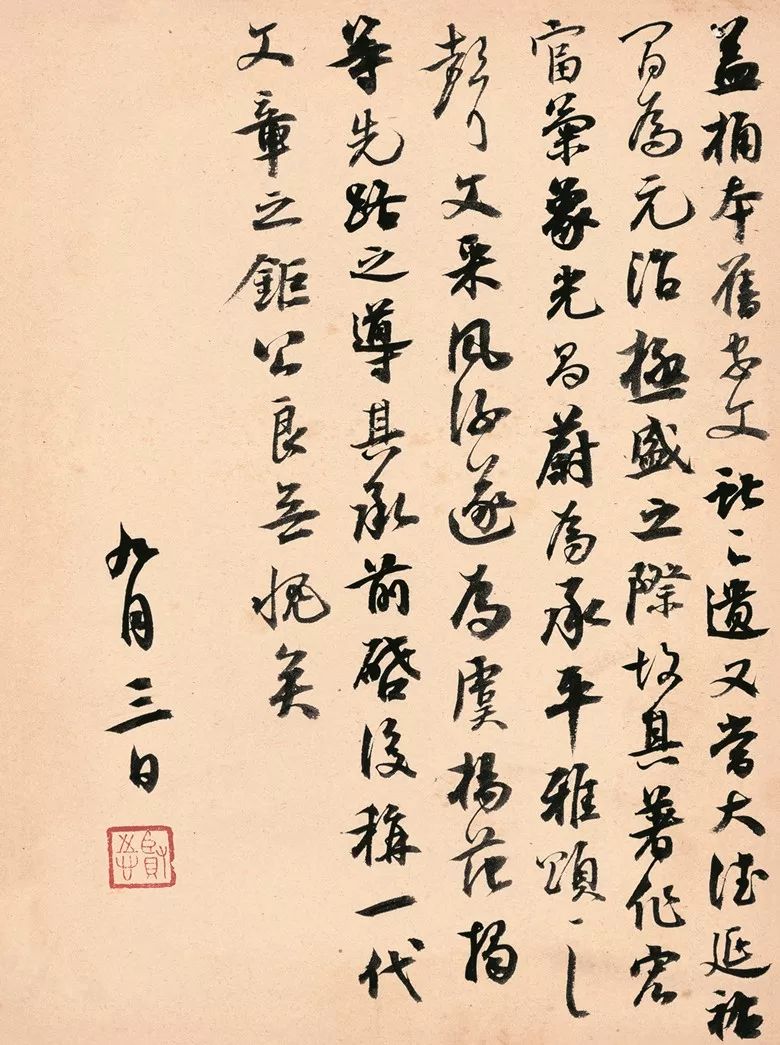 蓋桷本舊家文獻之遺又當大德延祐
間為元治極盛之際故其著作宏
富氣象光昌蔚為承平雅頌之
聲文采風流遂為虞楊范揭
等先路之導其承前啓後稱一代
文章之鉅公良無愧矣
九月三日